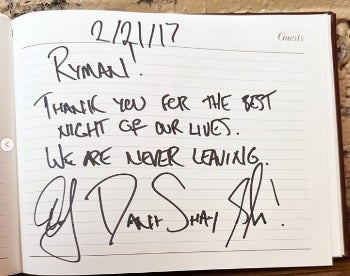 2/21/17
Guests
RYMAN!
THANK YOU FOR THE BEST
NIGHT OF OUR LIVES.
WE ARE NEVER LEAVING.
DAN + SHAY